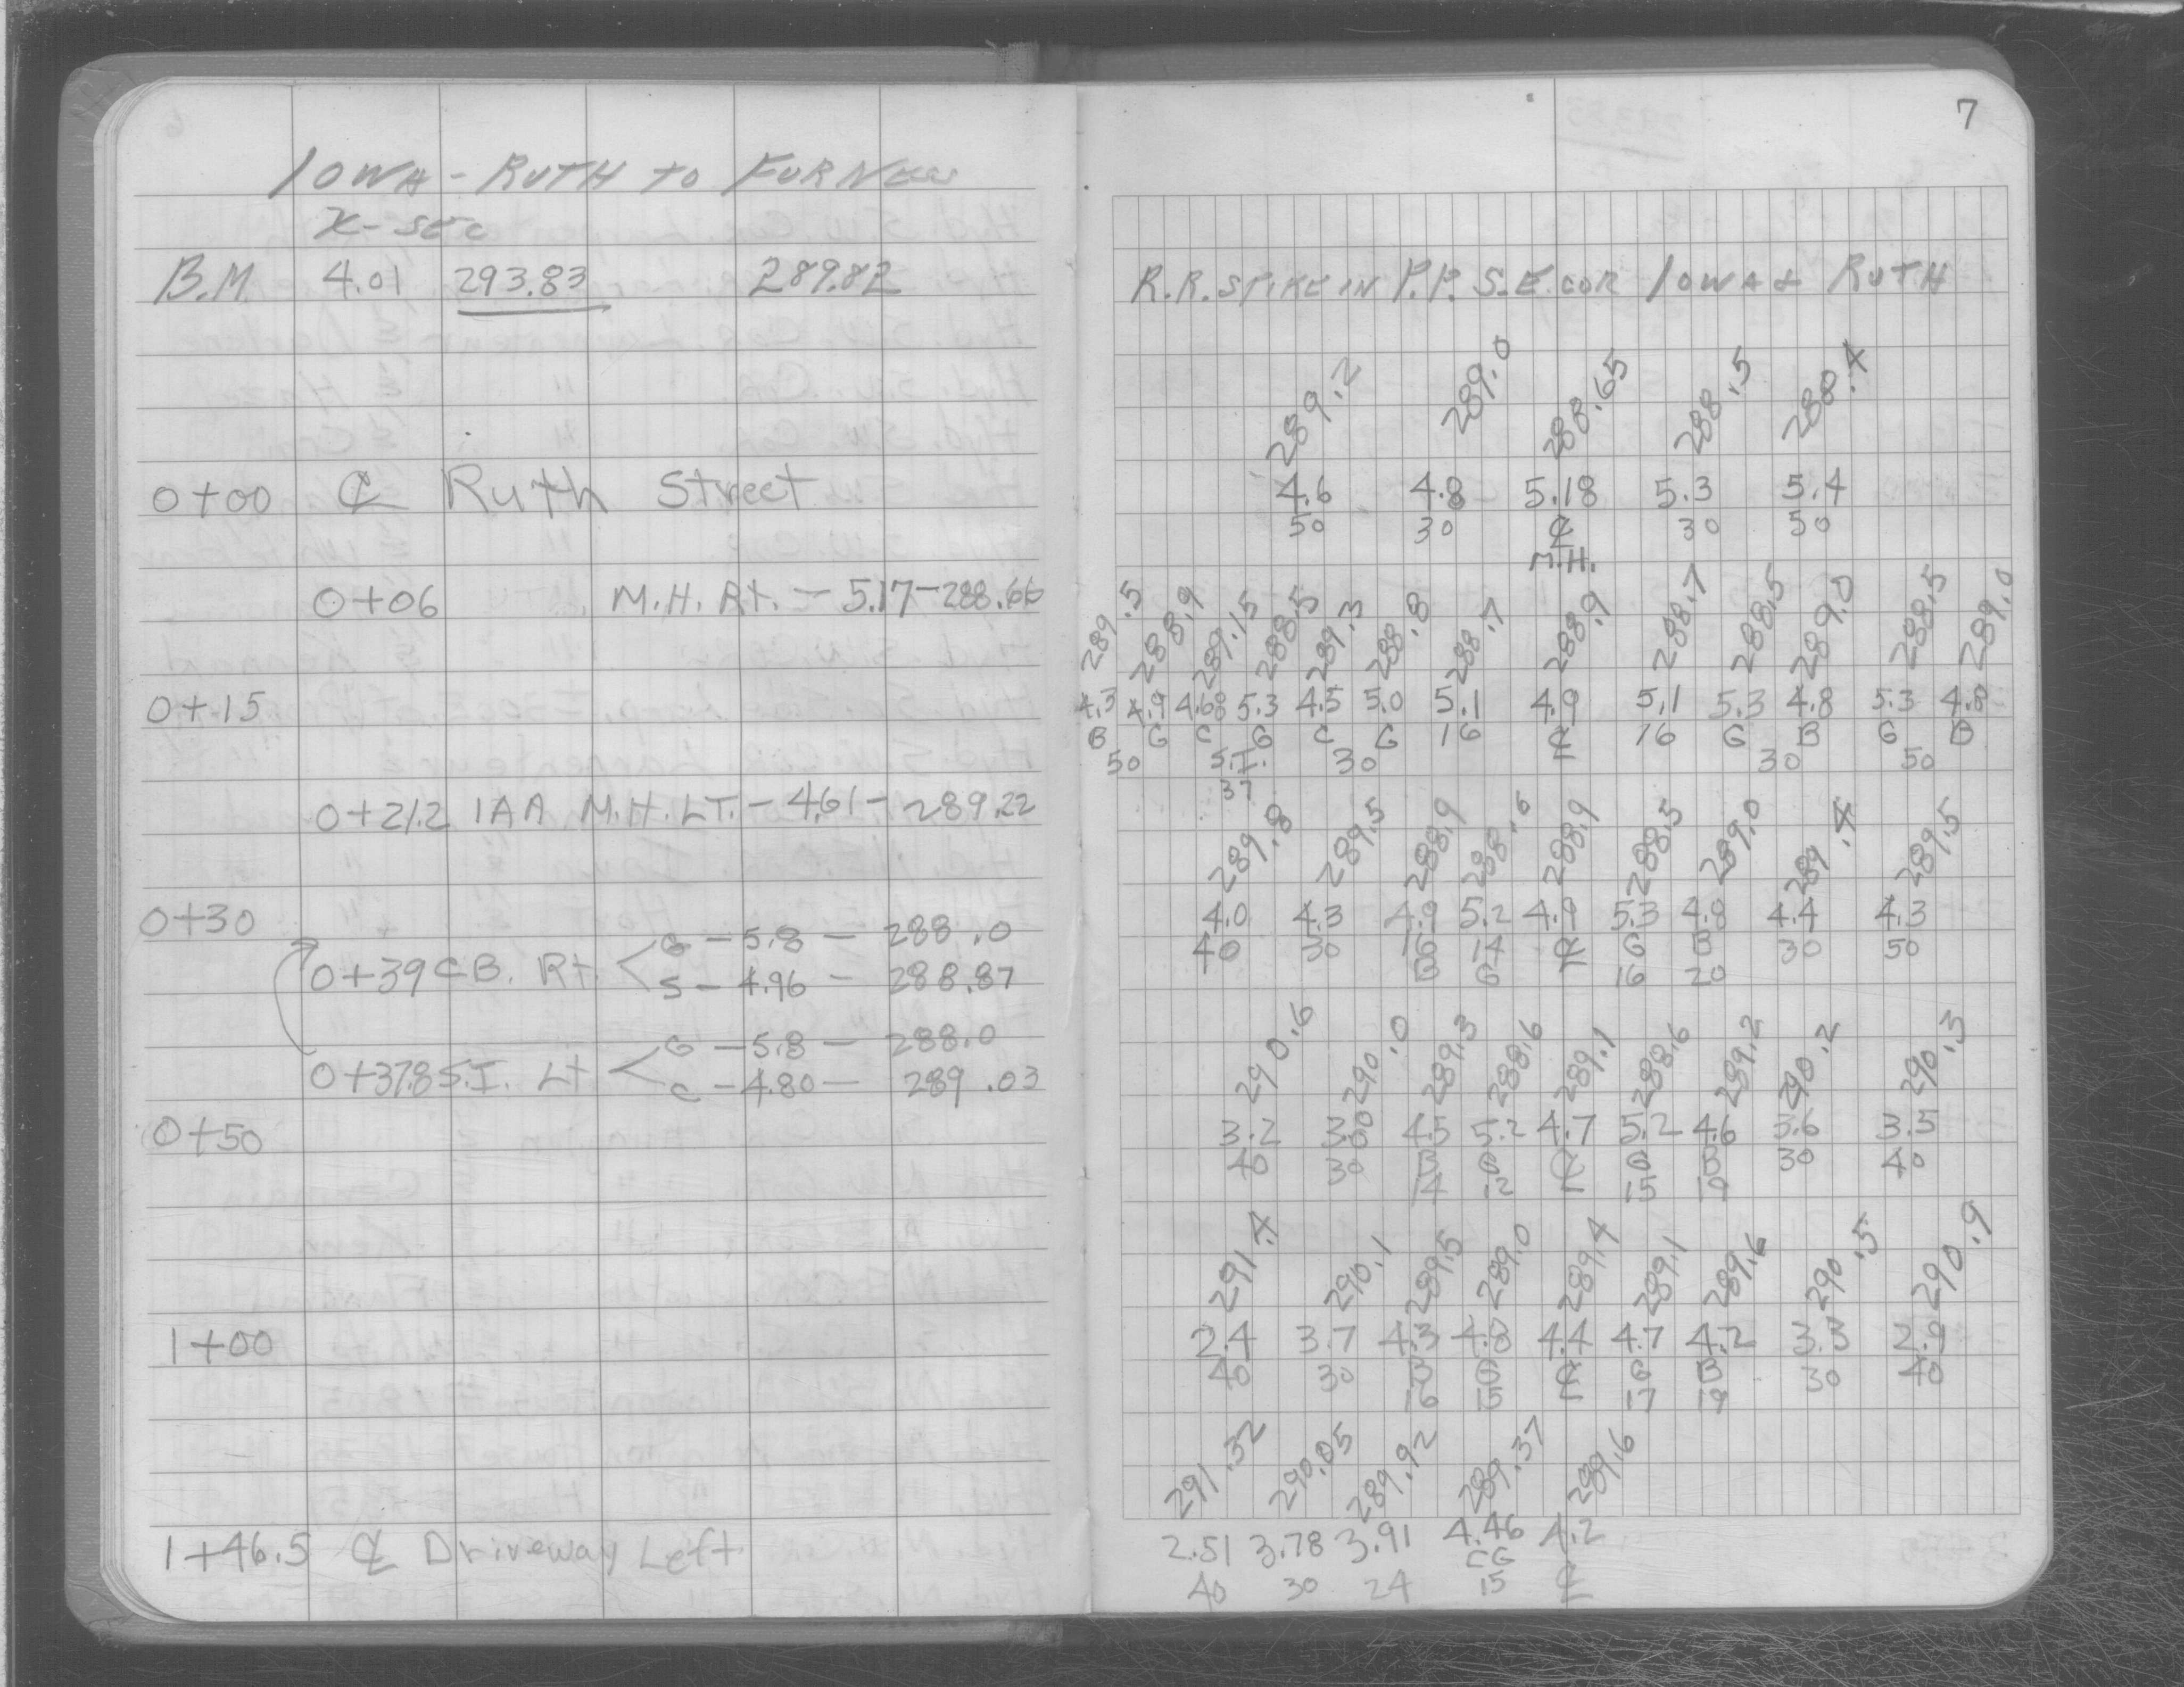 7
IOWA - RUTH TO FURNESS
X-SEC
B.M. 4.01 293.83 289.82 R.R. SPIKE IN P.P. S.E. COR IOWA & RUTH
289.2 289.0 288.65 288.5 288.4
0+00 ℄ Ruth Street 4.6 4.8 5.18 5.3 5.4
50 30 ℄ 30 50
M.H.
0+06 M.H. Rt. - 5.17 - 288.66
289.5 288.9 289.15 288.5 289.3 288.8 288.7 288.9 288.7 288.5 289.0 288.5 289.0
0+15 4.3 4.9 4.68 5.3 4.5 5.0 5.1 4.9 5.1 5.3 4.8 5.3 4.8
B G C G C G 16 ℄ 16 G B G B
50 S.I. 30 30 50
37
0+21.2 1AA M.H. LT. - 4.61 - 289.22
289.8 289.5 288.9 288.6 288.9 288.5 289.0 289.4 289.5
0+30 4.0 4.3 4.9 5.2 4.9 5.3 4.8 4.4 4.3
40 30 16 14 ℄ G B 30 50
B G 16 20
G - 5.8 - 288.0
0+39 C.B. Rt. < S - 4.96 - 288.87
G - 5.8 - 288.0
0+37.8 S.I. Lt < C - 4.80 - 289.03
290.6 290.0 289.3 288.6 289.1 288.6 289.2 290.2 290.3
0+50 3.2 3.80 4.5 5.2 4.7 5.2 4.6 3.6 3.5
40 30 B G ℄ G B 30 40
14 12 15 19
291.4 290.1 289.5 289.0 289.4 289.1 289.6 290.5 290.9
1+00 2.4 3.7 4.3 4.8 4.4 4.7 4.2 3.3 2.9
40 30 B G ℄ G B 30 40
16 15 17 19
291.32 290.05 289.92 289.37 289.6
1+46.5 ℄ Driveway Left 2.51 3.78 3.91 4.46 4.2
CG
40 30 24 15 ℄